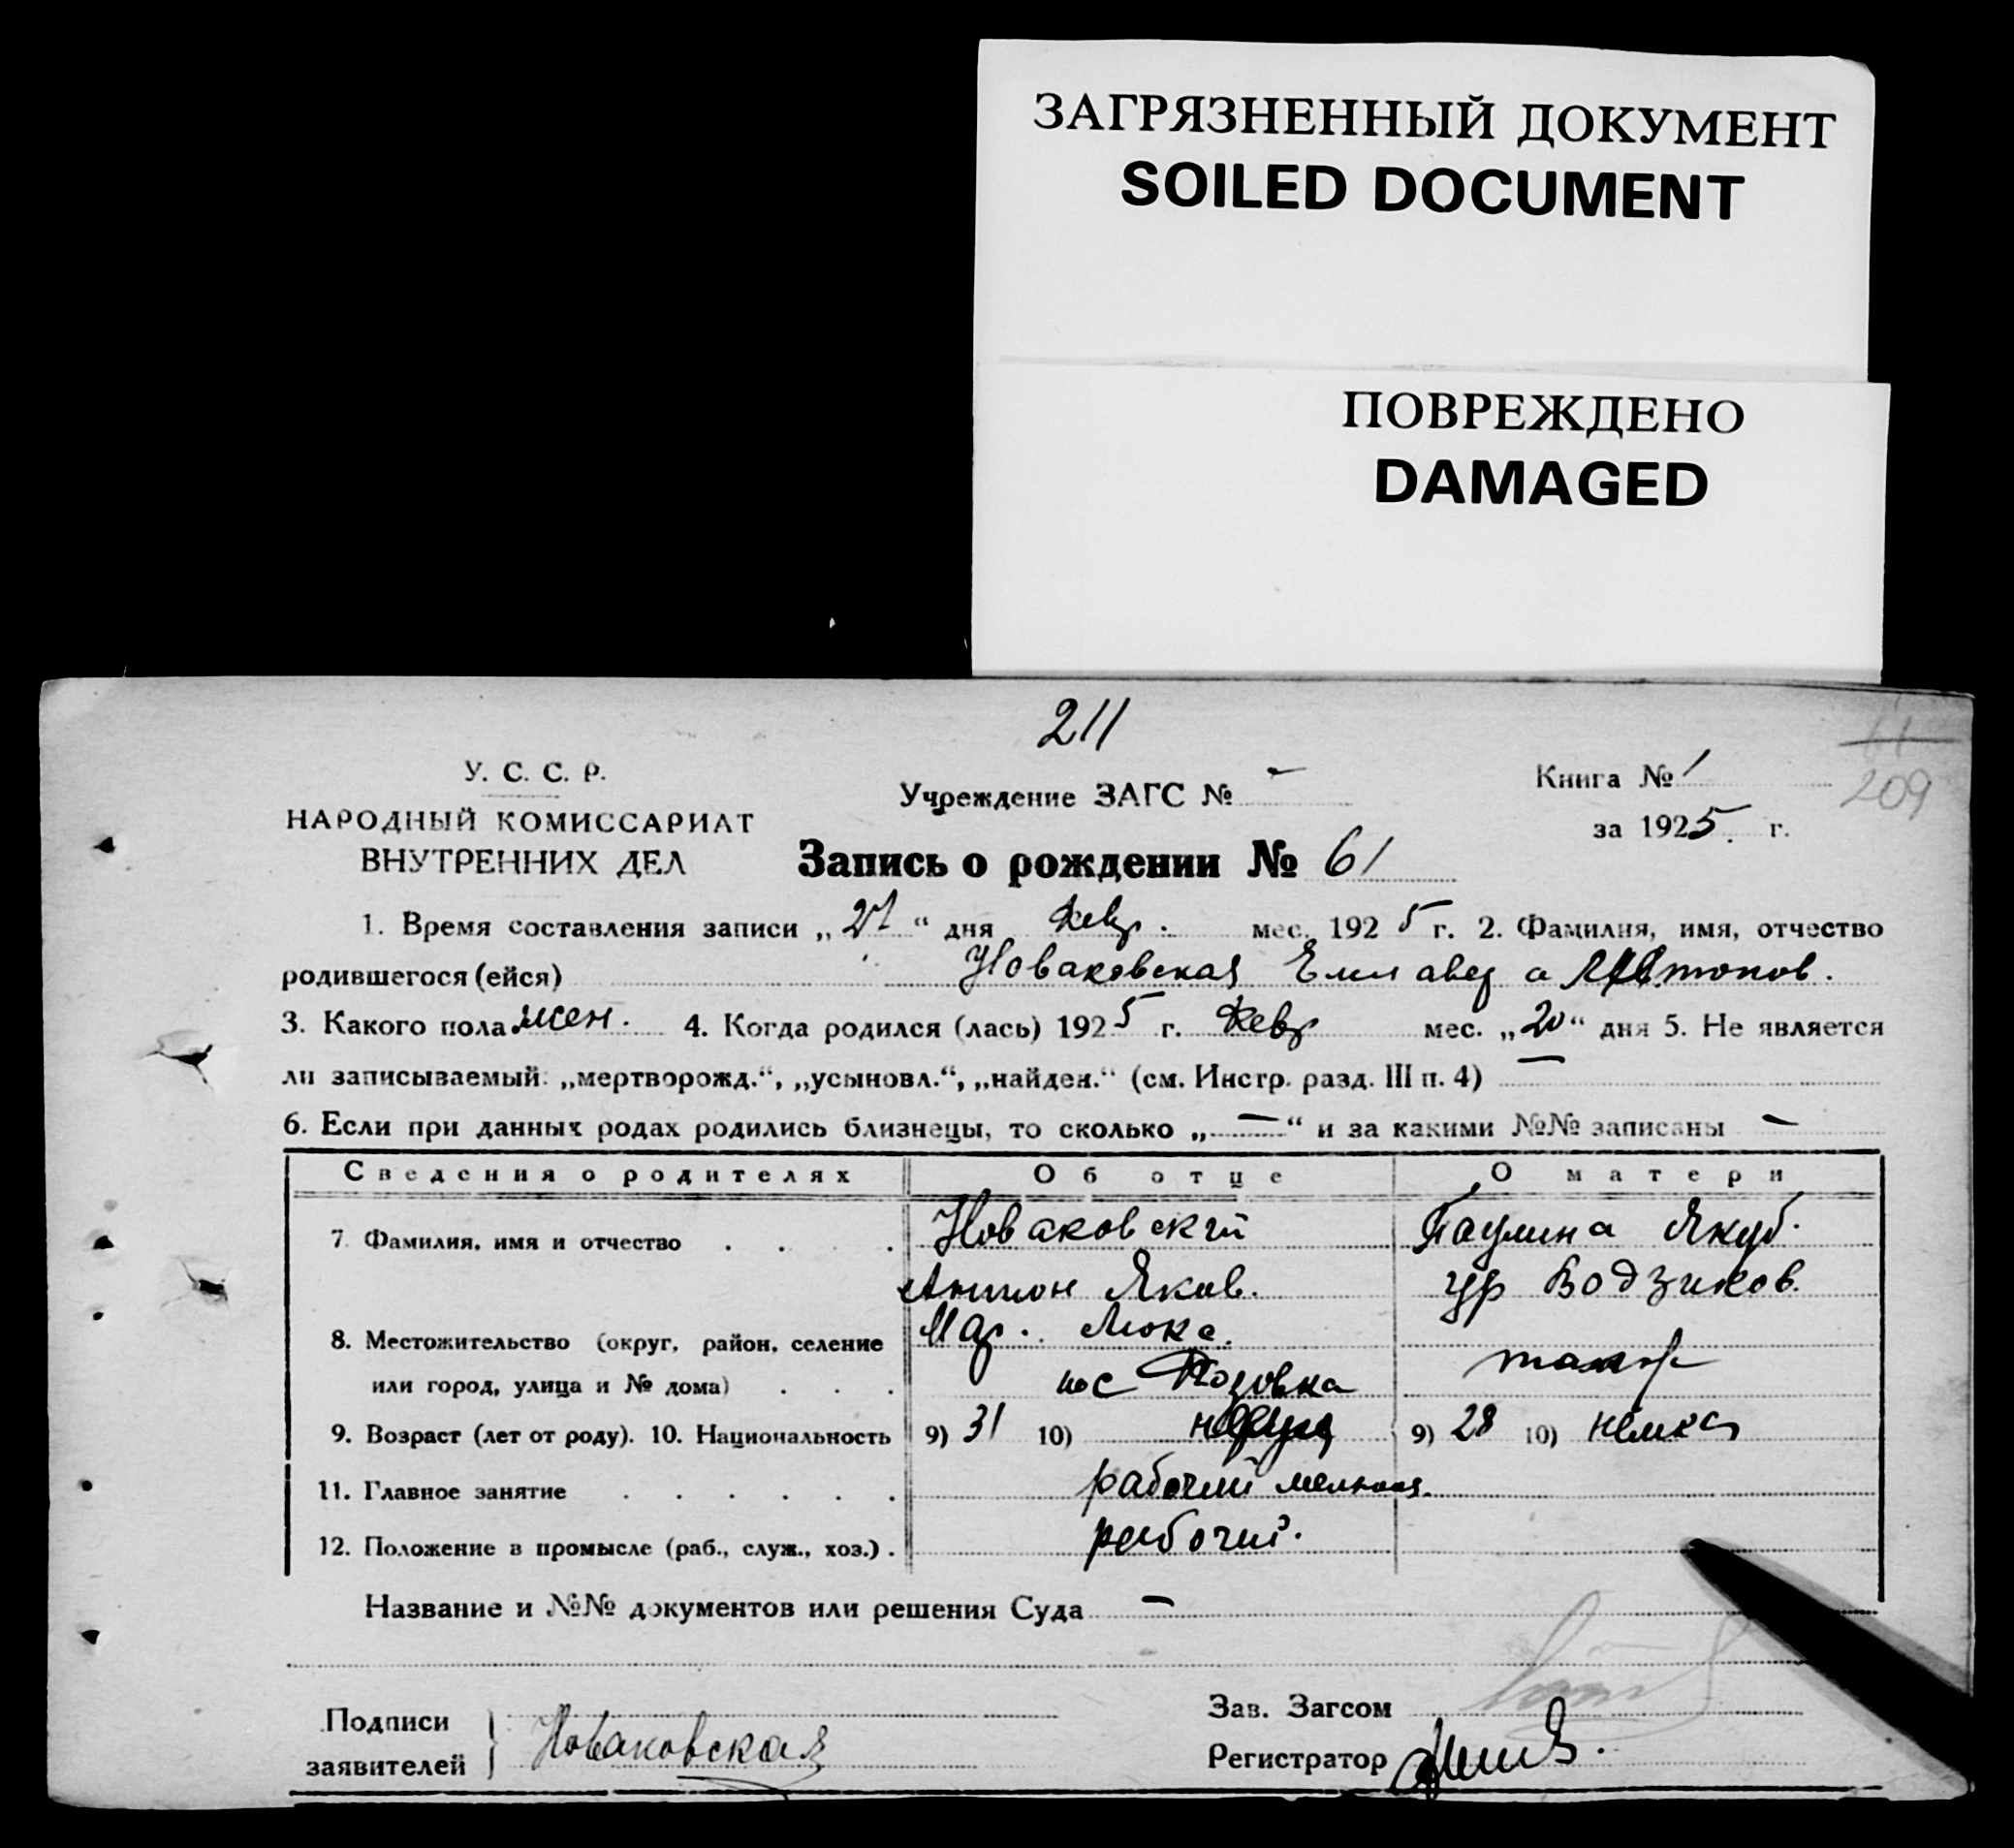 ЗАГРЯЗНЕННЫЙ ДОКУМЕНТ
SOILED DOCUMENT
ПОВРЕЖДЕНО
DAMAGED
211
У. С. С. Р.
НАРОДНЫЙ КОМИССАРИАТ
ВНУТРЕННИХ ДЕЛ
Учреждение ЗАГС № —
Книга № 1
209
за 1925 г.
Запись о рождении № 61
1. Время составления записи „27“ дня Февр. мес. 1925 г. 2. Фамилия, имя, отчество
родившегося (ейся) Новаковская Елисавета Антонов.
3. Какого пола жен. 4. Когда родился (лась) 1925 г. Февр мес. „20“ дня 5. Не является
ли записываемый: „мертворожд.“, „усыновл.“, „найден.“ (см. Инстр. разд. III п. 4) —
6. Если при данных родах родились близнецы, то сколько „—“ и за какими №№ записаны —
Сведения о родителях Об отце О матери
7. Фамилия, имя и отчество . . . Новаковский Паулина Якуб.
Антон Яков. ур Водзиков.
8. Местожительство (округ, район, селение Мар. Люкс.
или город, улица и № дома) . . . пос Розовка
9. Возраст (лет от роду). 10. Национальность 9) 31 10) 9) 28 10) немка
11. Главное занятие . . . . . . рабочий
12. Положение в промысле (раб., служ., хоз.) . рабочий.
Название и №№ документов или решения Суда —
Подписи
заявителей } Новаковская
Зав. Загсом
Регистратор